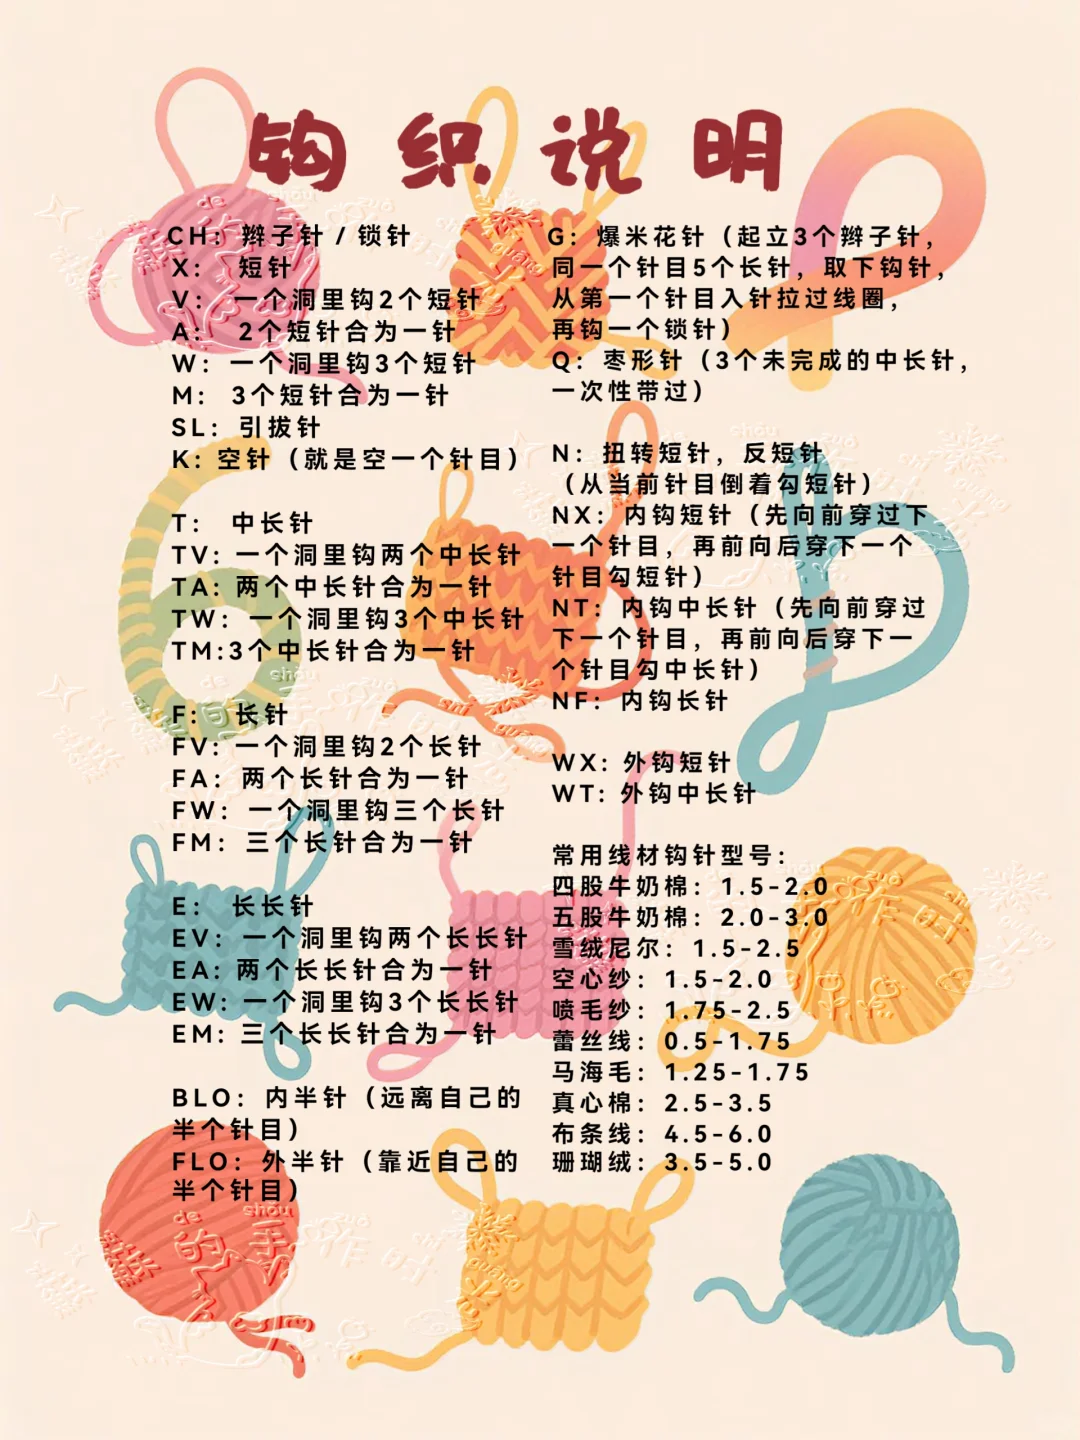 钩织说明
CH：辫子针 / 锁针
X： 短针
V： 一个洞里钩2个短针
A： 2个短针合为一针
W：一个洞里钩3个短针
M： 3个短针合为一针
SL：引拔针
K：空针（就是空一个针目）
T： 中长针
TV：一个洞里钩两个中长针
TA：两个中长针合为一针
TW：一个洞里钩3个中长针
TM:3个中长针合为一针
F： 长针
FV：一个洞里钩2个长针
FA：两个长针合为一针
FW：一个洞里钩三个长针
FM：三个长针合为一针
E： 长长针
EV：一个洞里钩两个长长针
EA：两个长长针合为一针
EW：一个洞里钩3个长长针
EM：三个长长针合为一针
BLO：内半针（远离自己的
半个针目）
FLO：外半针（靠近自己的
半个针目）
G：爆米花针（起立3个辫子针，
同一个针目5个长针，取下钩针，
从第一个针目入针拉过线圈，
再钩一个锁针）
Q：枣形针（3个未完成的中长针，
一次性带过）
N：扭转短针，反短针
（从当前针目倒着勾短针）
NX：内钩短针（先向前穿过下
一个针目，再前向后穿下一个
针目勾短针）
NT：内钩中长针（先向前穿过
下一个针目，再前向后穿下一
个针目勾中长针）
NF：内钩长针
WX：外钩短针
WT：外钩中长针
常用线材钩针型号：
四股牛奶棉：1.5-2.0
五股牛奶棉：2.0-3.0
雪绒尼尔：1.5-2.5
空心纱：1.5-2.0
喷毛纱：1.75-2.5
蕾丝线：0.5-1.75
马海毛：1.25-1.75
真心棉：2.5-3.5
布条线：4.5-6.0
珊瑚绒：3.5-5.0
de
shǒu
的
手